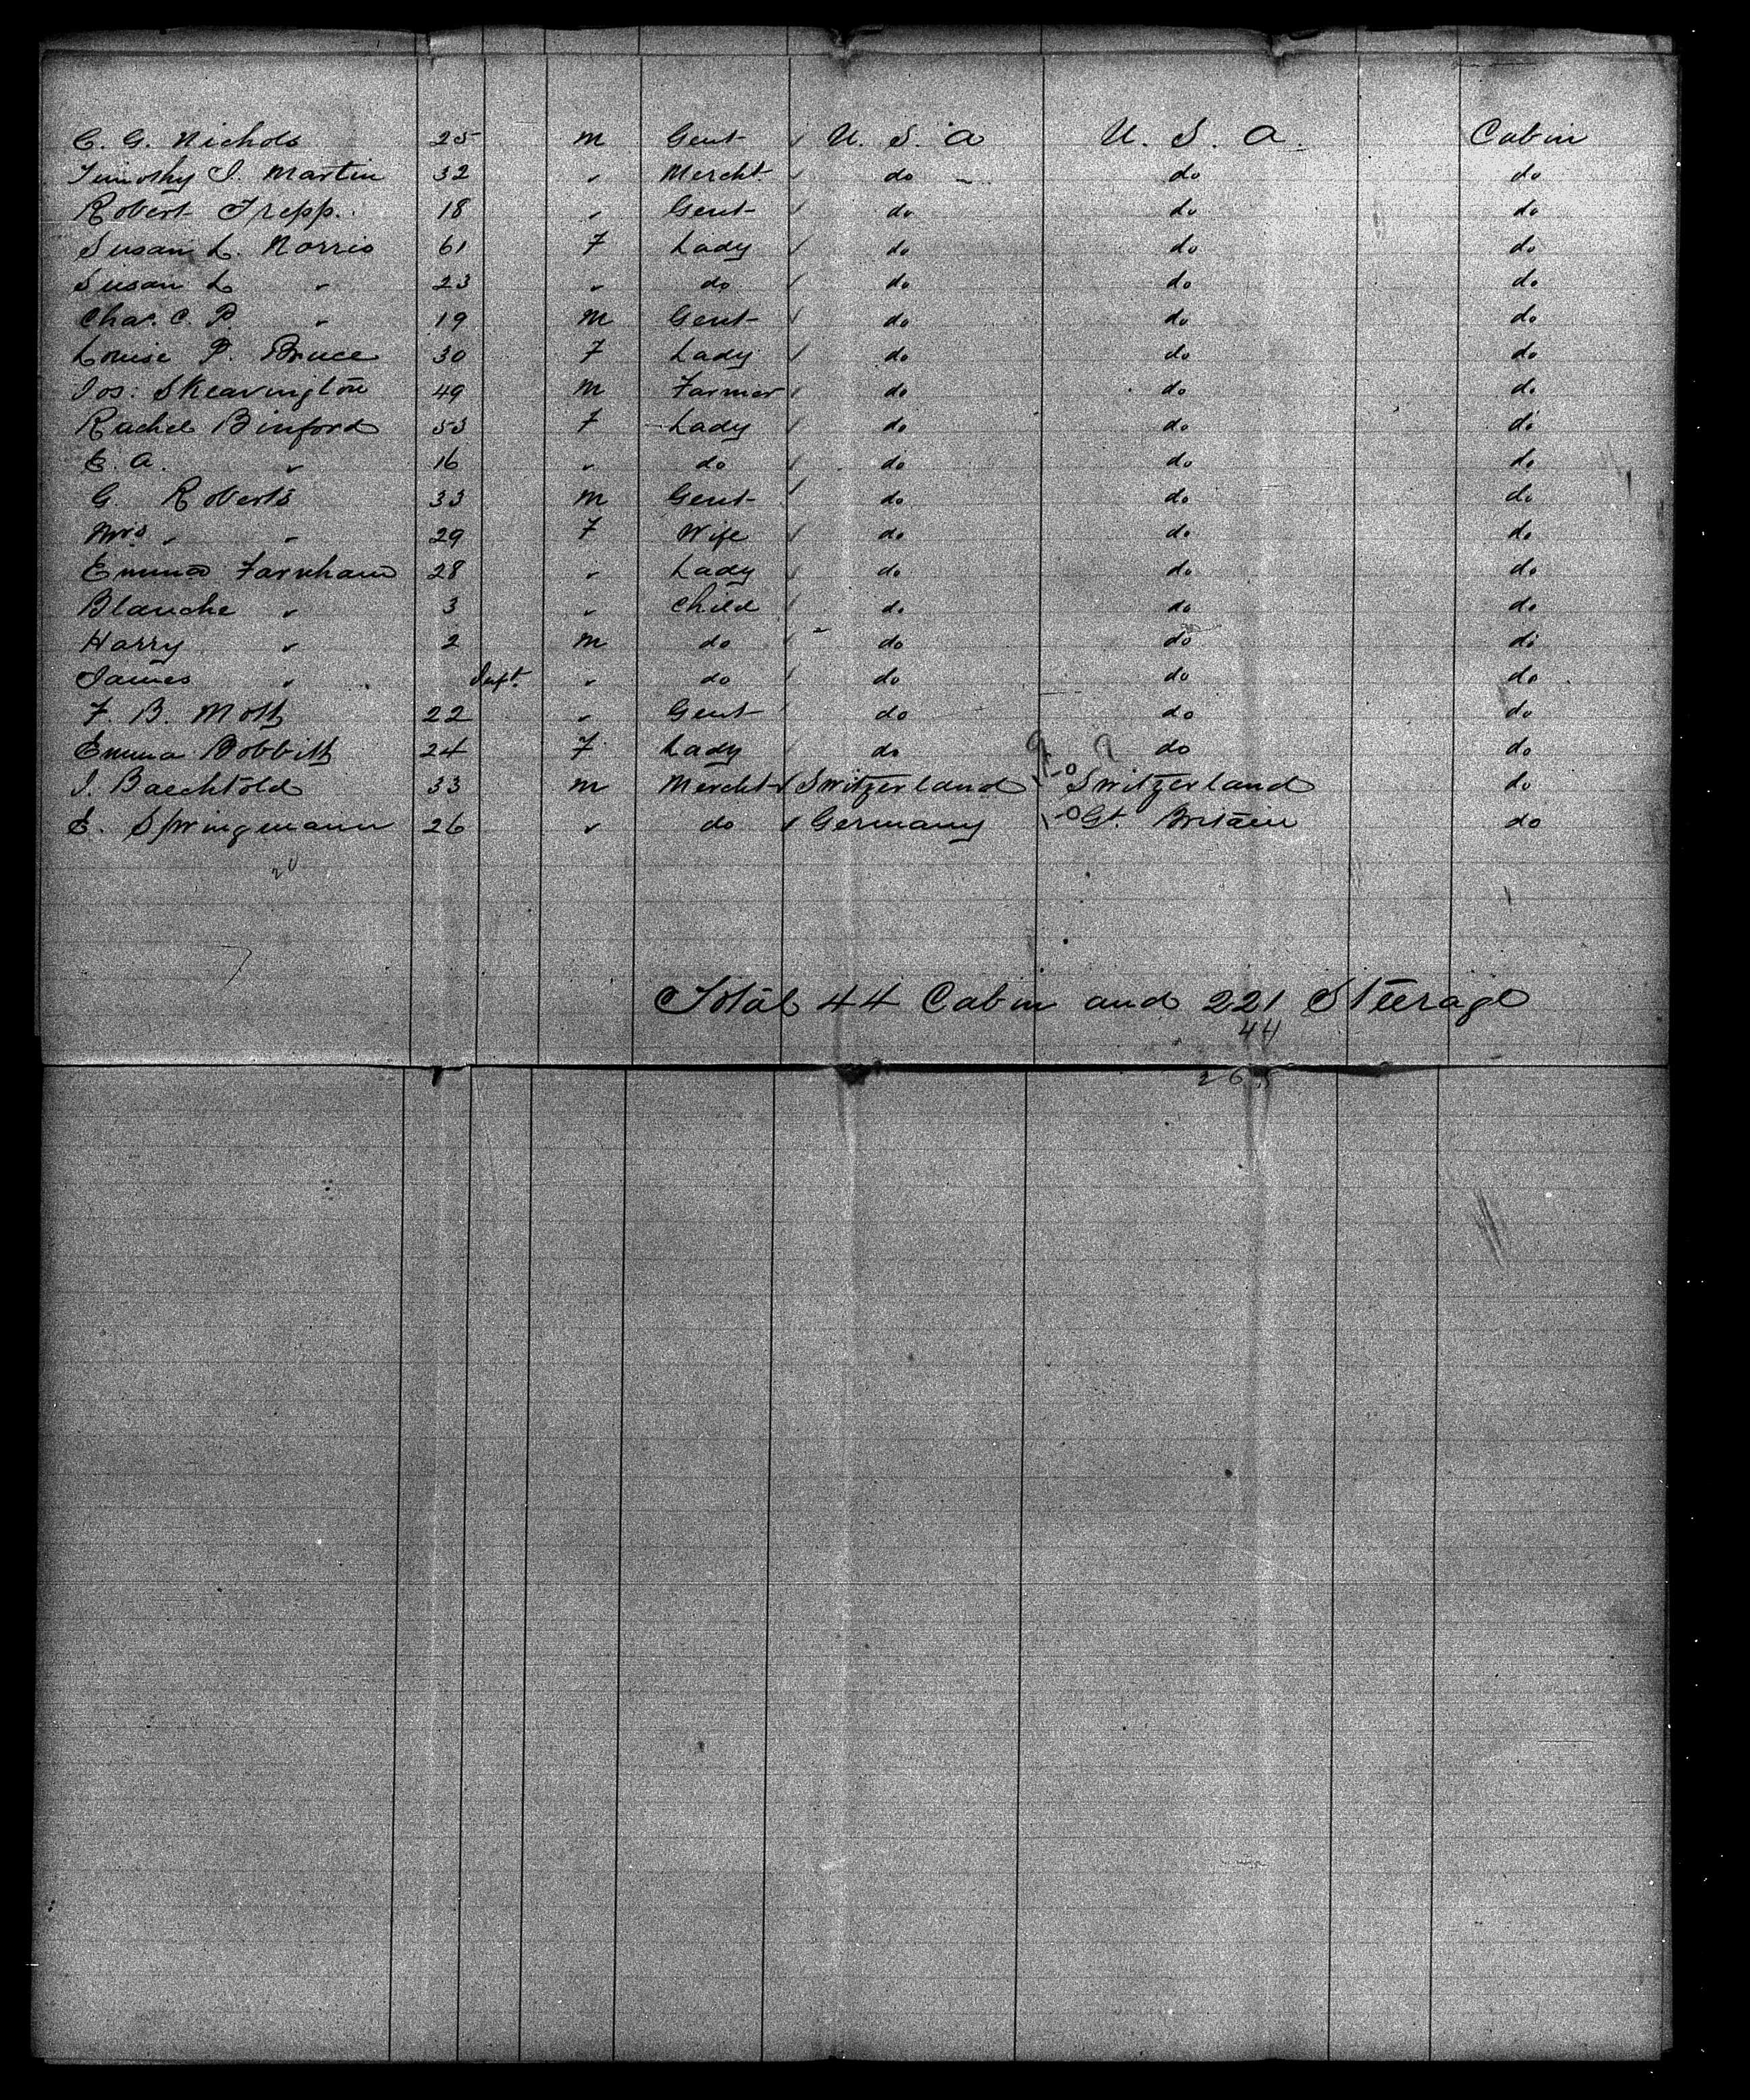 C. G. Nichols 25 M Gent U. S. A U. S. A. Cabin
Timothy J. Martin 32 " Mercht do do do
Robert Trepp. 18 " Gent do do do
Susan L. Norris 61 F Lady do do do
Susan L " 23 " do do do do
Chas. C. P. " 19 M Gent do do do
Louise P. Bruce 30 F Lady do do do
Jos: Skeavington 49 M Farmer do do do
Rachel Binford 53 F Lady do do do
E. A. " 16 " do do do do
G. Roberts 33 M Gent do do do
Mrs " " 29 F Wife do do do
Emma Farnham 28 " Lady do do do
Blanche " 3 " Child do do do
Harry " 2 M do do do do
James " Inft. " do do do do
F. B. Mott 22 " Gent do do do
Emma Bobbitt 24 F Lady do do do
J. Baechtold 33 M Mercht Switzerland Switzerland do
E. Springmann 26 " do Germany Gt. Britain do
20
Total 44 Cabin and 221 Steerage
44
265